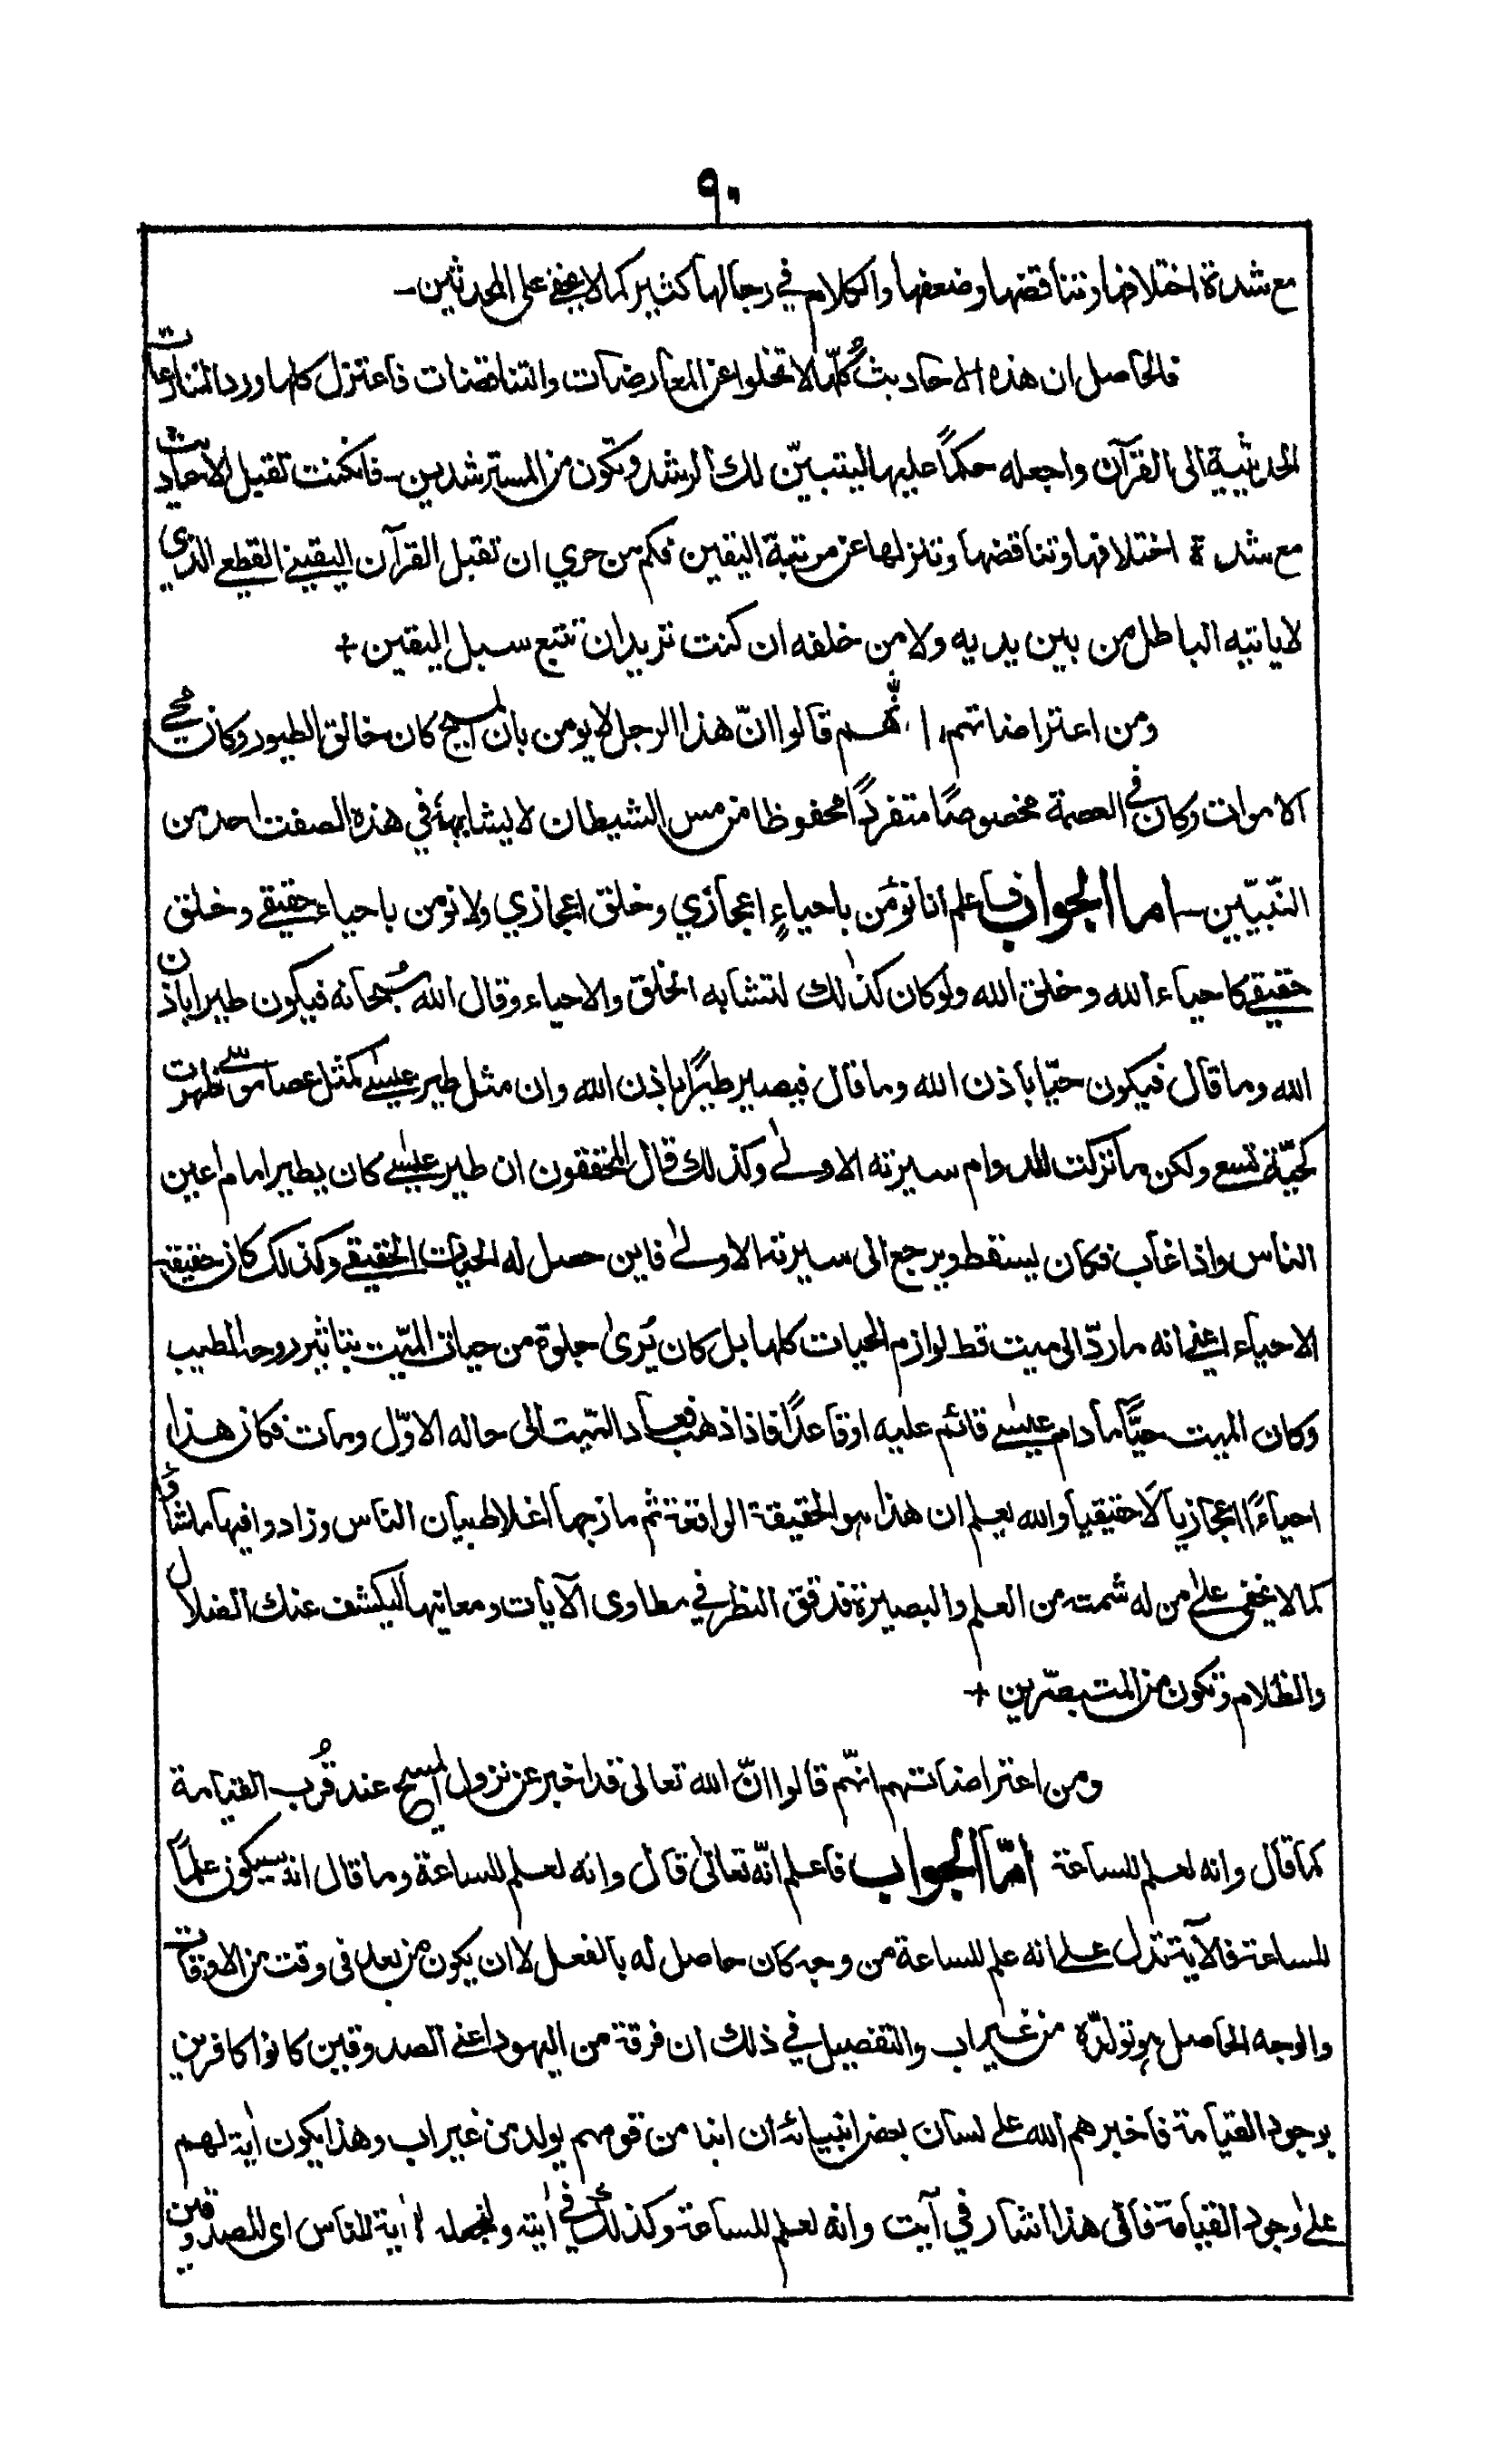 ٩٠
مع شدة اختلافها وتناقضها وضعفها والكلام في رجالها كثير كما لا يخفى على المحدثين-
فالحاصل ان هذه الاحاديث كُلّها لا تخلوا عن المعارضات والتناقضات فاعتزل كلها ورد التنازعات
الحديثية الى القرآن واجعله حكمًا عليها ليتبيّن لك الرشد وتكون من المسترشدين- فان كنت تقبل الاحاديث
مع شدة اختلافها وتناقضها وتنزلها عن مرتبة اليقين فكم من حري ان تقبل القرآن اليقينى القطعى الذي
لا ياتيه الباطل من بين يديه ولا من خلفه ان كنت تريد ان تتبع سبل اليقين +
ومن اعتراضاتهم انّهم قالوا انّ هذا الرجل لا يومن بان المسيح كان خالق الطيور وكان محي
الاموات وكان في العصمة مخصوصًا متفردًا محفوظا من مس الشيطان لا يشابهه في هذه الصفت احد من
النّبيّين- اما الجواب فاعلم انا نؤمن باحياءٍ اعجازي وخلق اعجازي ولا نومن باحياء حقيقى وخلق
حقيقى كاحياء الله وخلق الله ولو كان كذٰلك لتشابه الخلق والاحياء وقال الله سُبحانه فيكون طيرا باذن
الله وما قال فيكون حيّا باذن الله وما قال فيصير طيرًا باذن الله وان مثل طير عيسٰى كمثل عصا موسٰى ظهرت
كحيّة تسعى ولكن ما تركت للدوام سيرته الاولىٰ وكذلك قال المحققون ان طير عيسٰى كان يطير امام اعين
الناس واذا غاب فكان يسقط ويرجع الى سيرته الاولىٰ فاين حصل له الحيات الحقيقى وكذلك كان حقيقة
الاحياء اعنى انه ما ردّ الى ميت قط لوازم الحيات كلها بل كان يُرىٰ جلوة من حيات الميّت بتاثير روحه الطيب
وكان الميت حيًّا ما دام عيسٰى قائم عليه او قاعدًا فاذا ذهب فعاد الميّت الى حاله الاوّل ومات فكان هذا
احياءً اعجازيا لا حقيقيا والله يعلم ان هذا هو الحقيقة الواقعة ثم مازجها اغلاط بيان الناس وزادوا فيها ما شاؤا
كما لا يخفى علىٰ من له شمة من العلم والبصيرة فدقق النظر في مطاوى الآيات ومعانيها ليكشف عنك الضلال
والظلام وتكون من المتبصّرين +
ومن اعتراضاتهم انهّم قالوا انّ الله تعالى قد اخبر عن نزول المسيح عند قُرب القيامة
كما قال وانه لعلم للساعة امّا الجواب فاعلم انّه تعالىٰ قال وانه لعلم للساعة وما قال انه سيكون علمًا
للساعة فالآية تدل على انه علم للساعة من وجه كان حاصل له بالفعل لا ان يكون من بعد فى وقت من الاوقات
والوجه الحاصل هو تولدّه من غير اب والتفصيل في ذلك ان فرقة من اليهود اعنى الصدوقين كانوا كافرين
بوجود القيامة فاخبرهم الله على لسان بعض انبيائه ان ابنا من قومهم يولد من غير اب وهذا يكون اٰية لهم
علىٰ وجود القيامة فالى هذا اشار في آيت وانه لعلم للساعة وكذلك في اٰية ولنجعله اٰية للناس اى للصدوقين